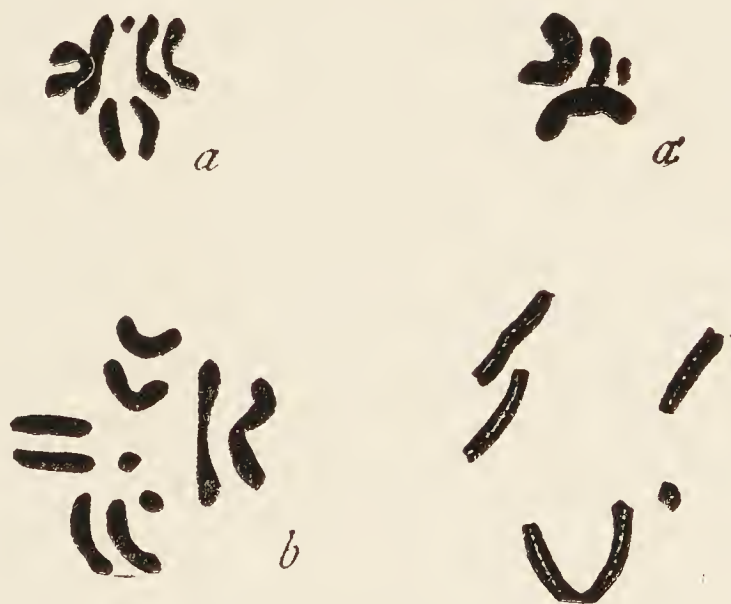 a
a'
b